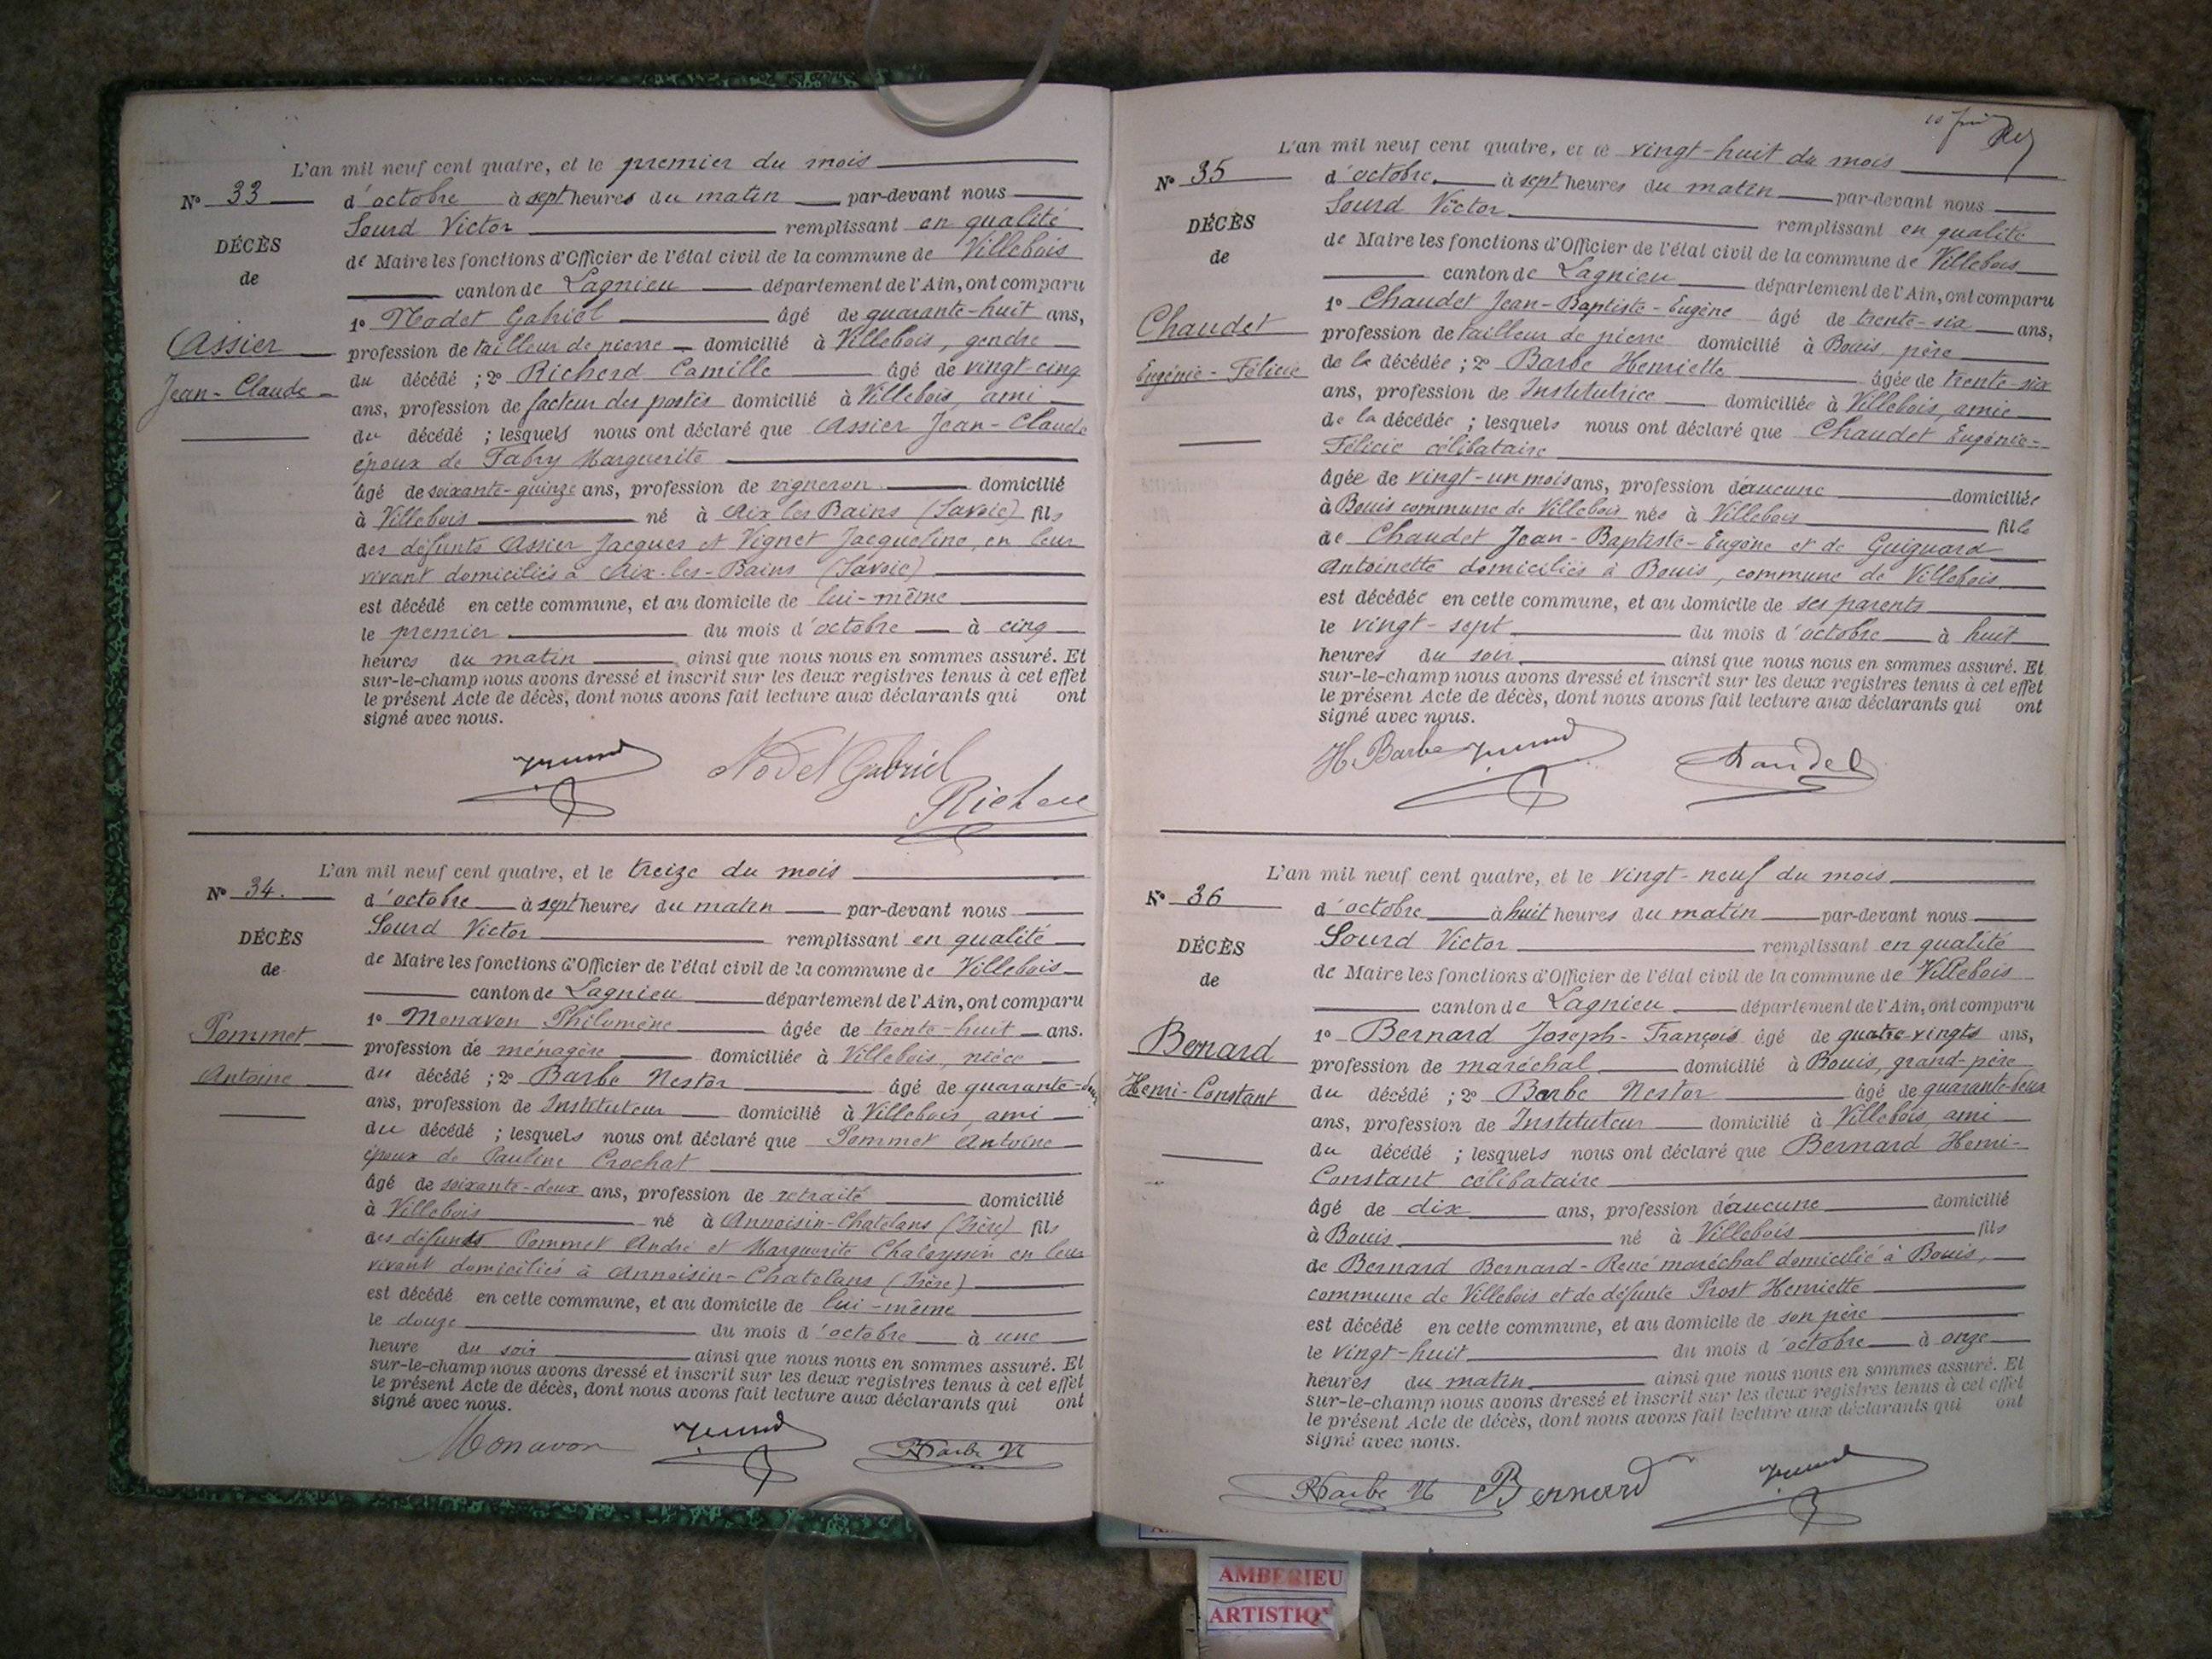 L'an mil neuf cent quatre, et le premier du mois
N° 33 d'octobre à sept heures du matin par-devant nous
Sourd Victor remplissant en qualité
DÉCÈS
de Maire les fonctions d'Officier de l'état civil de la commune de Villebois
de
canton de Lagnieu département de l'Ain, ont comparu
1° Nodet Gabriel âgé de quarante-huit ans,
Assier
profession de tailleur de pierre domicilié à Villebois, gendre
du décédé ; 2° Richerd Camille âgé de vingt-cinq
Jean-Claude
ans, profession de facteur des postes domicilié à Villebois, ami
du décédé ; lesquels nous ont déclaré que Assier Jean-Claude
époux de Fabry Marguerite
âgé de soixante-quinze ans, profession de vigneron domicilié
à Villebois né à Aix les Bains (Savoie) fils
des défunts Assier Jacques et Vignet Jacqueline, en leur
vivant domiciliés à Aix-les-Bains (Savoie)
est décédé en cette commune, et au domicile de lui-même
le premier du mois d'octobre à cinq
heures du matin ainsi que nous nous en sommes assuré. Et
sur-le-champ nous avons dressé et inscrit sur les deux registres tenus à cet effet
le présent Acte de décès, dont nous avons fait lecture aux déclarants qui ont
signé avec nous.
Nodet Gabriel
L'an mil neuf cent quatre, et le treize du mois
N° 34. d'octobre à sept heures du matin par-devant nous
Sourd Victor remplissant en qualité
DÉCÈS
de Maire les fonctions d'Officier de l'état civil de la commune de Villebois
de
canton de Lagnieu département de l'Ain, ont comparu
1° Monavon Philomène âgée de trente-huit ans.
Pommet
profession de ménagère domiciliée à Villebois, nièce
Antoine
du décédé ; 2° Barbe Nestor âgé de quarante-deux
ans, profession de Instituteur domicilié à Villebois, ami
du décédé ; lesquels nous ont déclaré que Pommet Antoine
époux de Pauline Crochat
âgé de soixante-deux ans, profession de retraité domicilié
à Villebois né à Annoisin-Chatelans (Isère) fils
des défunts Pommet André et Marguerite en leur
vivant domiciliés à Annoisin-Chatelans (Isère)
est décédé en cette commune, et au domicile de lui-même
le douze du mois d'octobre à une
heure du soir ainsi que nous nous en sommes assuré. Et
sur-le-champ nous avons dressé et inscrit sur les deux registres tenus à cet effet
le présent Acte de décès, dont nous avons fait lecture aux déclarants qui ont
signé avec nous.
Monavon Barbe N
L'an mil neuf cent quatre, et le vingt-huit du mois
N° 35 d'octobre à sept heures du matin par-devant nous
Sourd Victor remplissant en qualité
DÉCÈS
de Maire les fonctions d'Officier de l'état civil de la commune de Villebois
de
canton de Lagnieu département de l'Ain, ont comparu
1° Chaudet Jean-Baptiste-Eugène âgé de trente-six ans,
Chaudet
profession de tailleur de pierre domicilié à Bouis, père
Eugénie-Félicie
de la décédée ; 2° Barbe Henriette âgée de trente-six
ans, profession de Institutrice domiciliée à Villebois, amie
de la décédée ; lesquels nous ont déclaré que Chaudet Eugénie-
Félicie célibataire
âgée de vingt-un mois ans, profession d'aucune domiciliée
à Bouis commune de Villebois née à Villebois fille
de Chaudet Jean-Baptiste-Eugène et de Guignard
Antoinette domiciliés à Bouis, commune de Villebois
est décédée en cette commune, et au domicile de ses parents
le vingt-sept du mois d'octobre à huit
heures du soir ainsi que nous nous en sommes assuré. Et
sur-le-champ nous avons dressé et inscrit sur les deux registres tenus à cet effet
le présent Acte de décès, dont nous avons fait lecture aux déclarants qui ont
signé avec nous.
H. Barbe Chaudet
L'an mil neuf cent quatre, et le vingt-neuf du mois
N° 36 d'octobre à huit heures du matin par-devant nous
Sourd Victor remplissant en qualité
DÉCÈS
de Maire les fonctions d'Officier de l'état civil de la commune de Villebois
de
canton de Lagnieu département de l'Ain, ont comparu
1° Bernard Joseph-François âgé de quatre-vingts ans,
Bernard
profession de maréchal domicilié à Bouis, grand-père
Henri-Constant
du décédé ; 2° Barbe Nestor âgé de quarante-deux
ans, profession de Instituteur domicilié à Villebois, ami
du décédé ; lesquels nous ont déclaré que Bernard Henri-
Constant célibataire
âgé de dix ans, profession d'aucune domicilié
à Bouis né à Villebois fils
de Bernard Bernard-René maréchal domicilié à Bouis,
commune de Villebois et de défunte Prost Henriette
est décédé en cette commune, et au domicile de son père
le vingt-huit du mois d'octobre à onze
heures du matin ainsi que nous nous en sommes assuré. Et
sur-le-champ nous avons dressé et inscrit sur les deux registres tenus à cet effet
le présent Acte de décès, dont nous avons fait lecture aux déclarants qui ont
signé avec nous.
Barbe N Bernard
AMBERIEU
ARTISTIQ